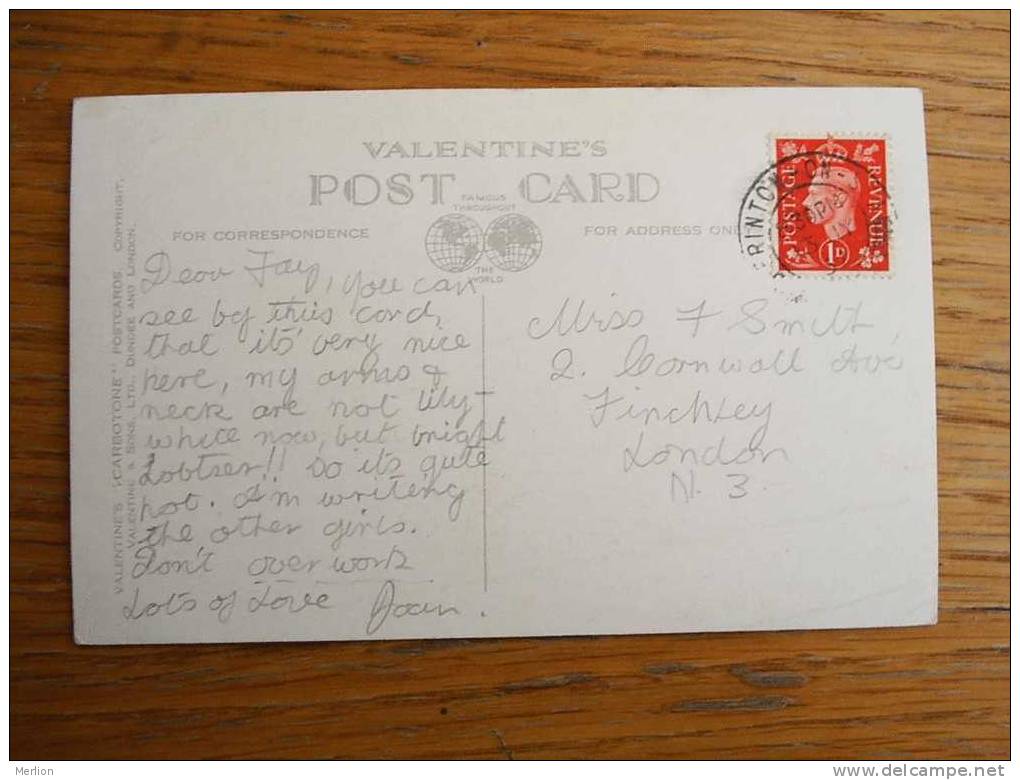 VALENTINE'S
POST CARD
FAMOUS
THROUGHOUT
THE
WORLD
FOR CORRESPONDENCE
FOR ADDRESS ONLY
VALENTINE'S "CARBOTONE" POSTCARDS. COPYRIGHT.
VALENTINE & SONS, LTD., DUNDEE AND LONDON.
Dear Fay, you can
see by this card,
that it's very nice
here, my arms &
neck are not lily-
white now, but bright
Lobtser!! So it's quite
hot. I'm writing
the other girls.
Don't over work
Lots of Love Joan.
Miss F Smith,
2. Cornwall Ave
Finchley
London
N. 3.
POSTAGE
REVENUE
1D
RINTON-ON-
Merlion
www.delcampe.net